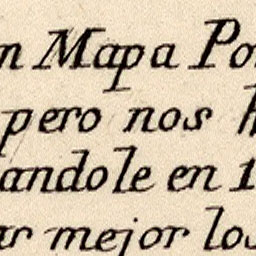 n Mapa Po
pero nos h
andole en 1
ar mejor los